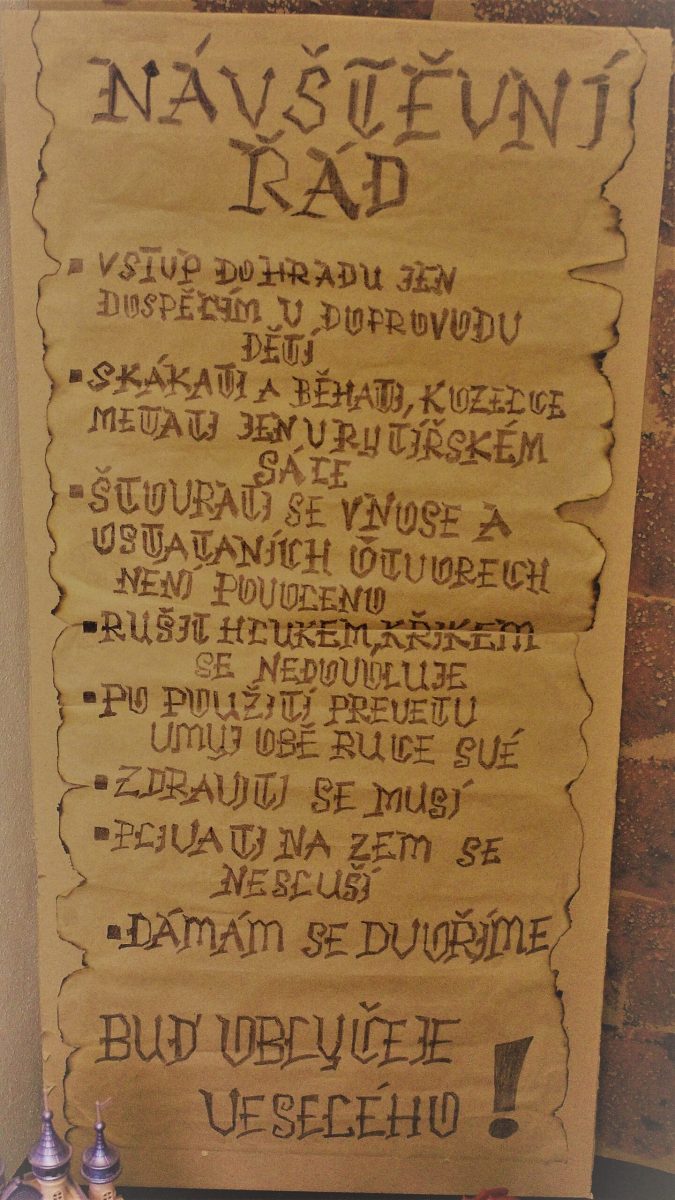 NÁVŠTĚVNÍ
ŘÁD
▪ VSTUP DO HRADU JEN
DOSPĚLÝM V DOPROVODU
DĚTÍ
▪ SKÁKATI A BĚHATI, KOZELCE
METATI JEN V RYTÍŘSKÉM
SÁLE
▪ ŠTOURATI SE V NOSE A
OSTATANÍCH OTVORECH
NENÍ POVOLENO
▪ RUŠIT HLUKEM, KŘIKEM
SE NEDOVOLUJE
▪ PO POUŽITÍ PREVETU
UMYJ OBĚ RUCE SVÉ
▪ ZDRAVITI SE MUSÍ
▪ PLIVATI NA ZEM SE
NESLUŠÍ
▪ DÁMÁM SE DVOŘÍME
BUĎ OBLYČEJE
VESELÉHO !